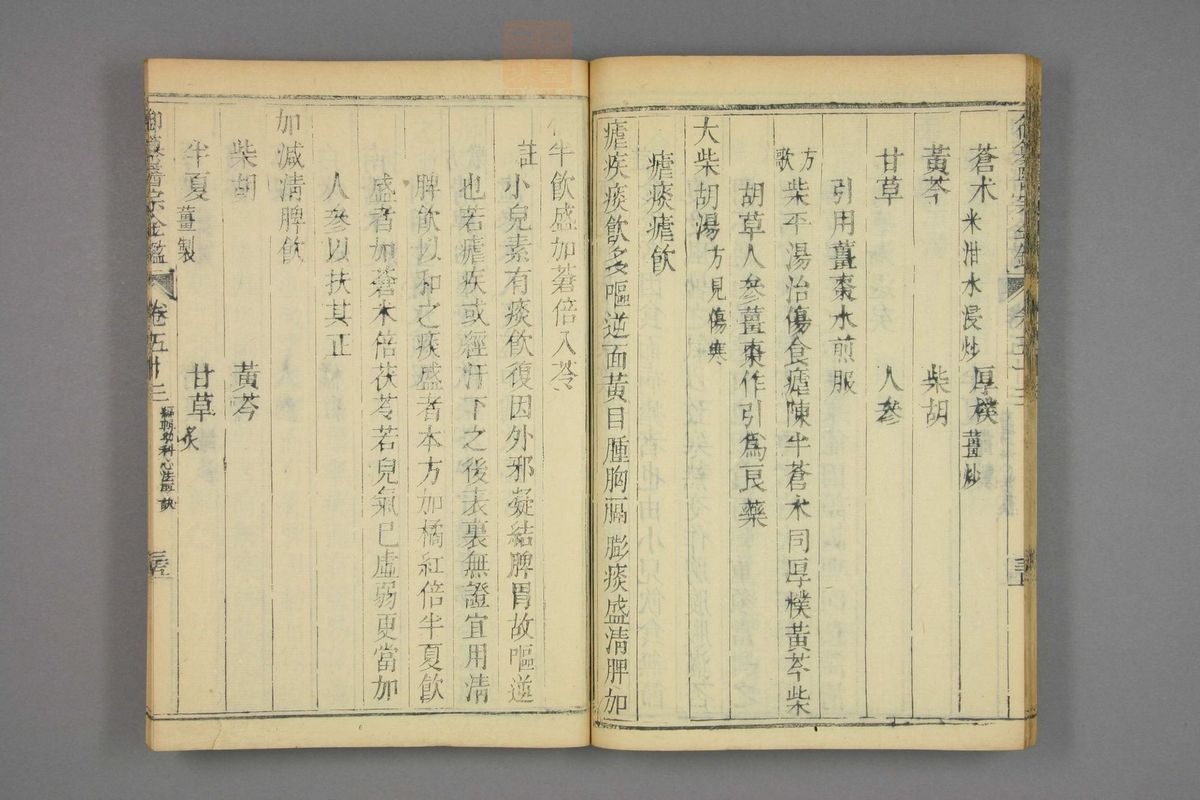 蒼朮米泔水浸炒 厚樸薑炒
黃芩 柴胡
甘草 人參
引用薑棗水煎服
方歌 柴平湯治傷食瘧陳半蒼朮同厚樸黃芩柴
胡草人參薑棗作引為良藥
大柴胡湯方見傷寒
瘧痰瘧飲
瘧疾痰飲多嘔逆面黃目腫胸膈膨痰盛清脾加
半飲盛加蒼倍入苓
註 小兒素有痰飲復因外邪凝結脾胃故嘔逆
也若瘧疾或經汗下之後表裏無證宜用清
脾飲以和之痰盛者本方加橘紅倍半夏飲
盛者加蒼朮倍茯苓若兒氣已虛弱更當加
人參以扶其正
加減清脾飲
柴胡 黃芩
半夏薑製 甘草炙
御纂醫宗金鑑 卷五十三 幼科心法要訣